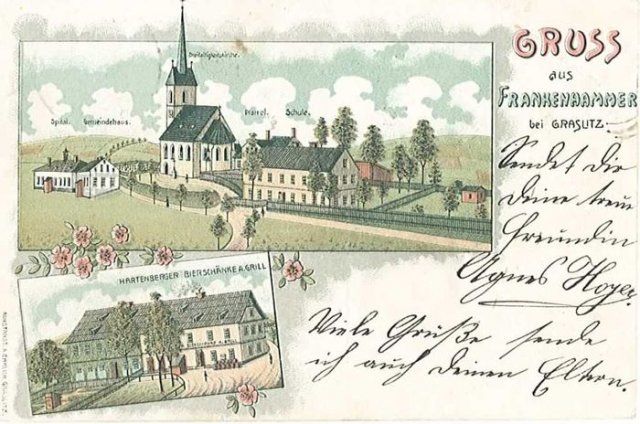 Dreifaltigkeitskirche.
Spital. Gemeindehaus.
Pfarrei. Schule.
GRUSS
aus
FRANKENHAMMER
bei GRASLITZ.
Sendet Dir
Deine treue
Freundin
Agnes Hoyer.
HARTENBERGER BIERSCHÄNKE A. GRILL
Viele Grüße sende
ich auch Deinen Eltern.